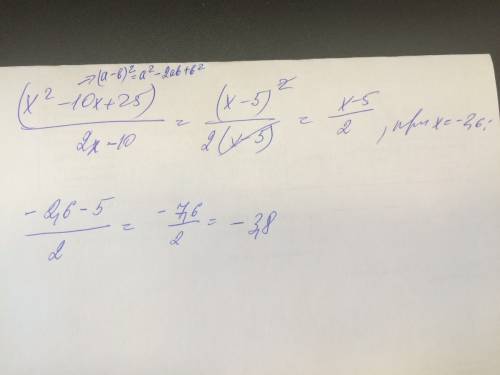 → (a-b)² = a² - 2ab + b²
(x² - 10x + 25) / 2x - 10 = (x - 5)² / 2(x - 5) = x - 5 / 2 , при x = -2,6:
-2,6 - 5 / 2 = -7,6 / 2 = -3,8